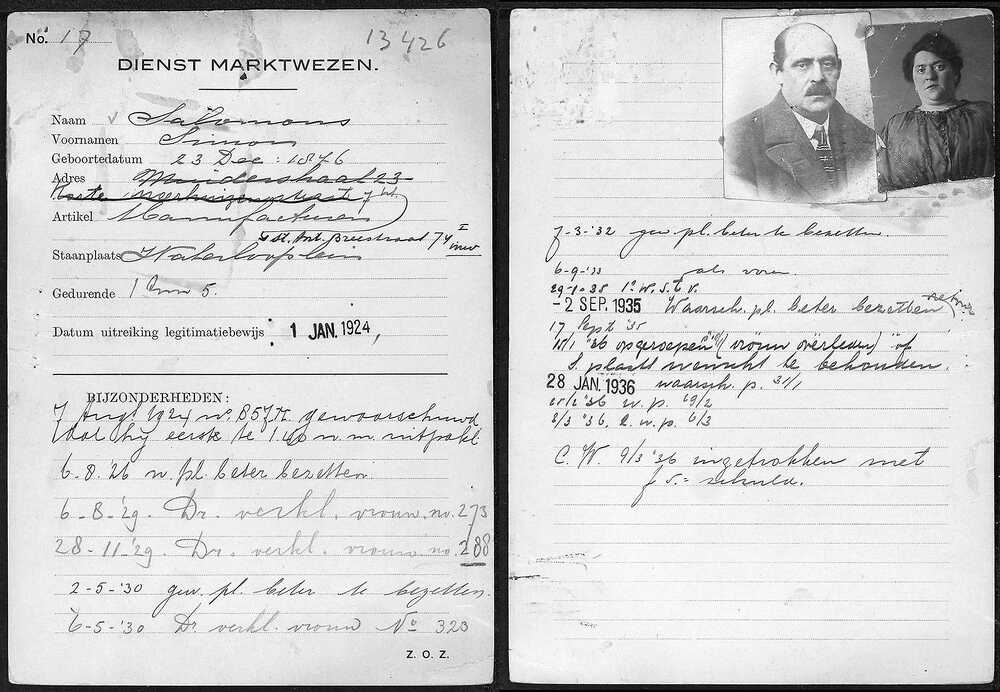 No. 17 13426
DIENST MARKTWEZEN.
Naam Salomons
Voornamen Simon
Geboortedatum 23 Dec: 1876
Adres Muiderstraat 23
Korte straat 7
Artikel Manufacturen
St. Ant. Breestraat 74 I
Staanplaats Waterlooplein
Gedurende 5.
Datum uitreiking legitimatiebewijs 1 JAN. 1924,
BIJZONDERHEDEN:
7 Aug 1924 no. 857 gewaarschuwd
dat hij eerst te 1 n.m. uitpakt
6-8-26 w. pl. beter bezetten
6-8-'29. Dr. verkl. vrouw. no. 273
28-11-'29. Dr. verkl. vrouw no. 288
2-5-'30 gew. pl. beter te bezetten.
6-5-'30 Dr. verkl. vrouw No 323
Z. O. Z.
7-3-'32 gew. pl. beter te bezetten.
6-9-'33 als voren.
29-1-35 1e W. S. t. V.
-2 SEP. 1935 Waarsch. pl. beter bezetten
17 Sept '35
15/1 '36 opgeroepen (vrouw overleden) of
S. plaats wenscht te behouden.
28 JAN. 1936 waarsch. p. 31/1
25/2 '36 w. p. 29/2
2/3 '36, 2. w. p. 6/3
C. W. 9/3 '36 ingetrokken met
f 5.= schuld.